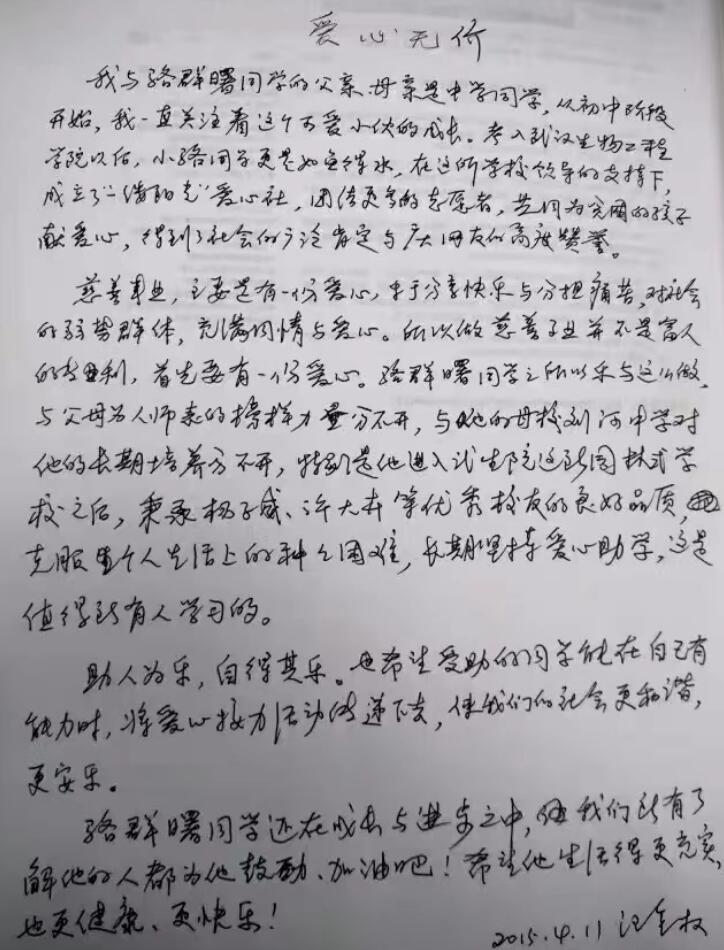 爱心无价
我与骆群曙同学的父亲、母亲是中学同学，从初中阶段
开始，我一直关注着这个可爱小伙的成长。考入武汉生物工程
学院以后，小骆同学更是如鱼得水，在这所学校领导的支持下，
成立了“阳光”爱心社，团结更多的志愿者，共同为贫困的孩子
献爱心，得到了社会的广泛肯定与广大网友的高度赞誉。
慈善事业，主要是有一份爱心，乐于分享快乐与分担痛苦，对社会
的弱势群体，充满同情与爱心。所以做慈善事业并不是富人
的专利，首先要有一份爱心。骆群曙同学之所以乐与这么做，
与父母为人师表的榜样力量分不开，与他的母校列河中学对
他的长期培养分不开，特别是他进入武生院这所园林式学
校之后，秉承杨子威、许大卉等优秀校友的良好品质，
克服个人生活上的种种困难，长期坚持爱心助学，这是
值得所有人学习的。
助人为乐，自得其乐。也希望受助的同学能在自己有
能力时，将爱心接力活动传递下去，使我们的社会更和谐，
更安乐。
骆群曙同学还在成长与进步之中，但我们所有了
解他的人都为他鼓劲、加油吧！希望他生活得更充实，
也更健康、更快乐！
2015.4.11 汪金权